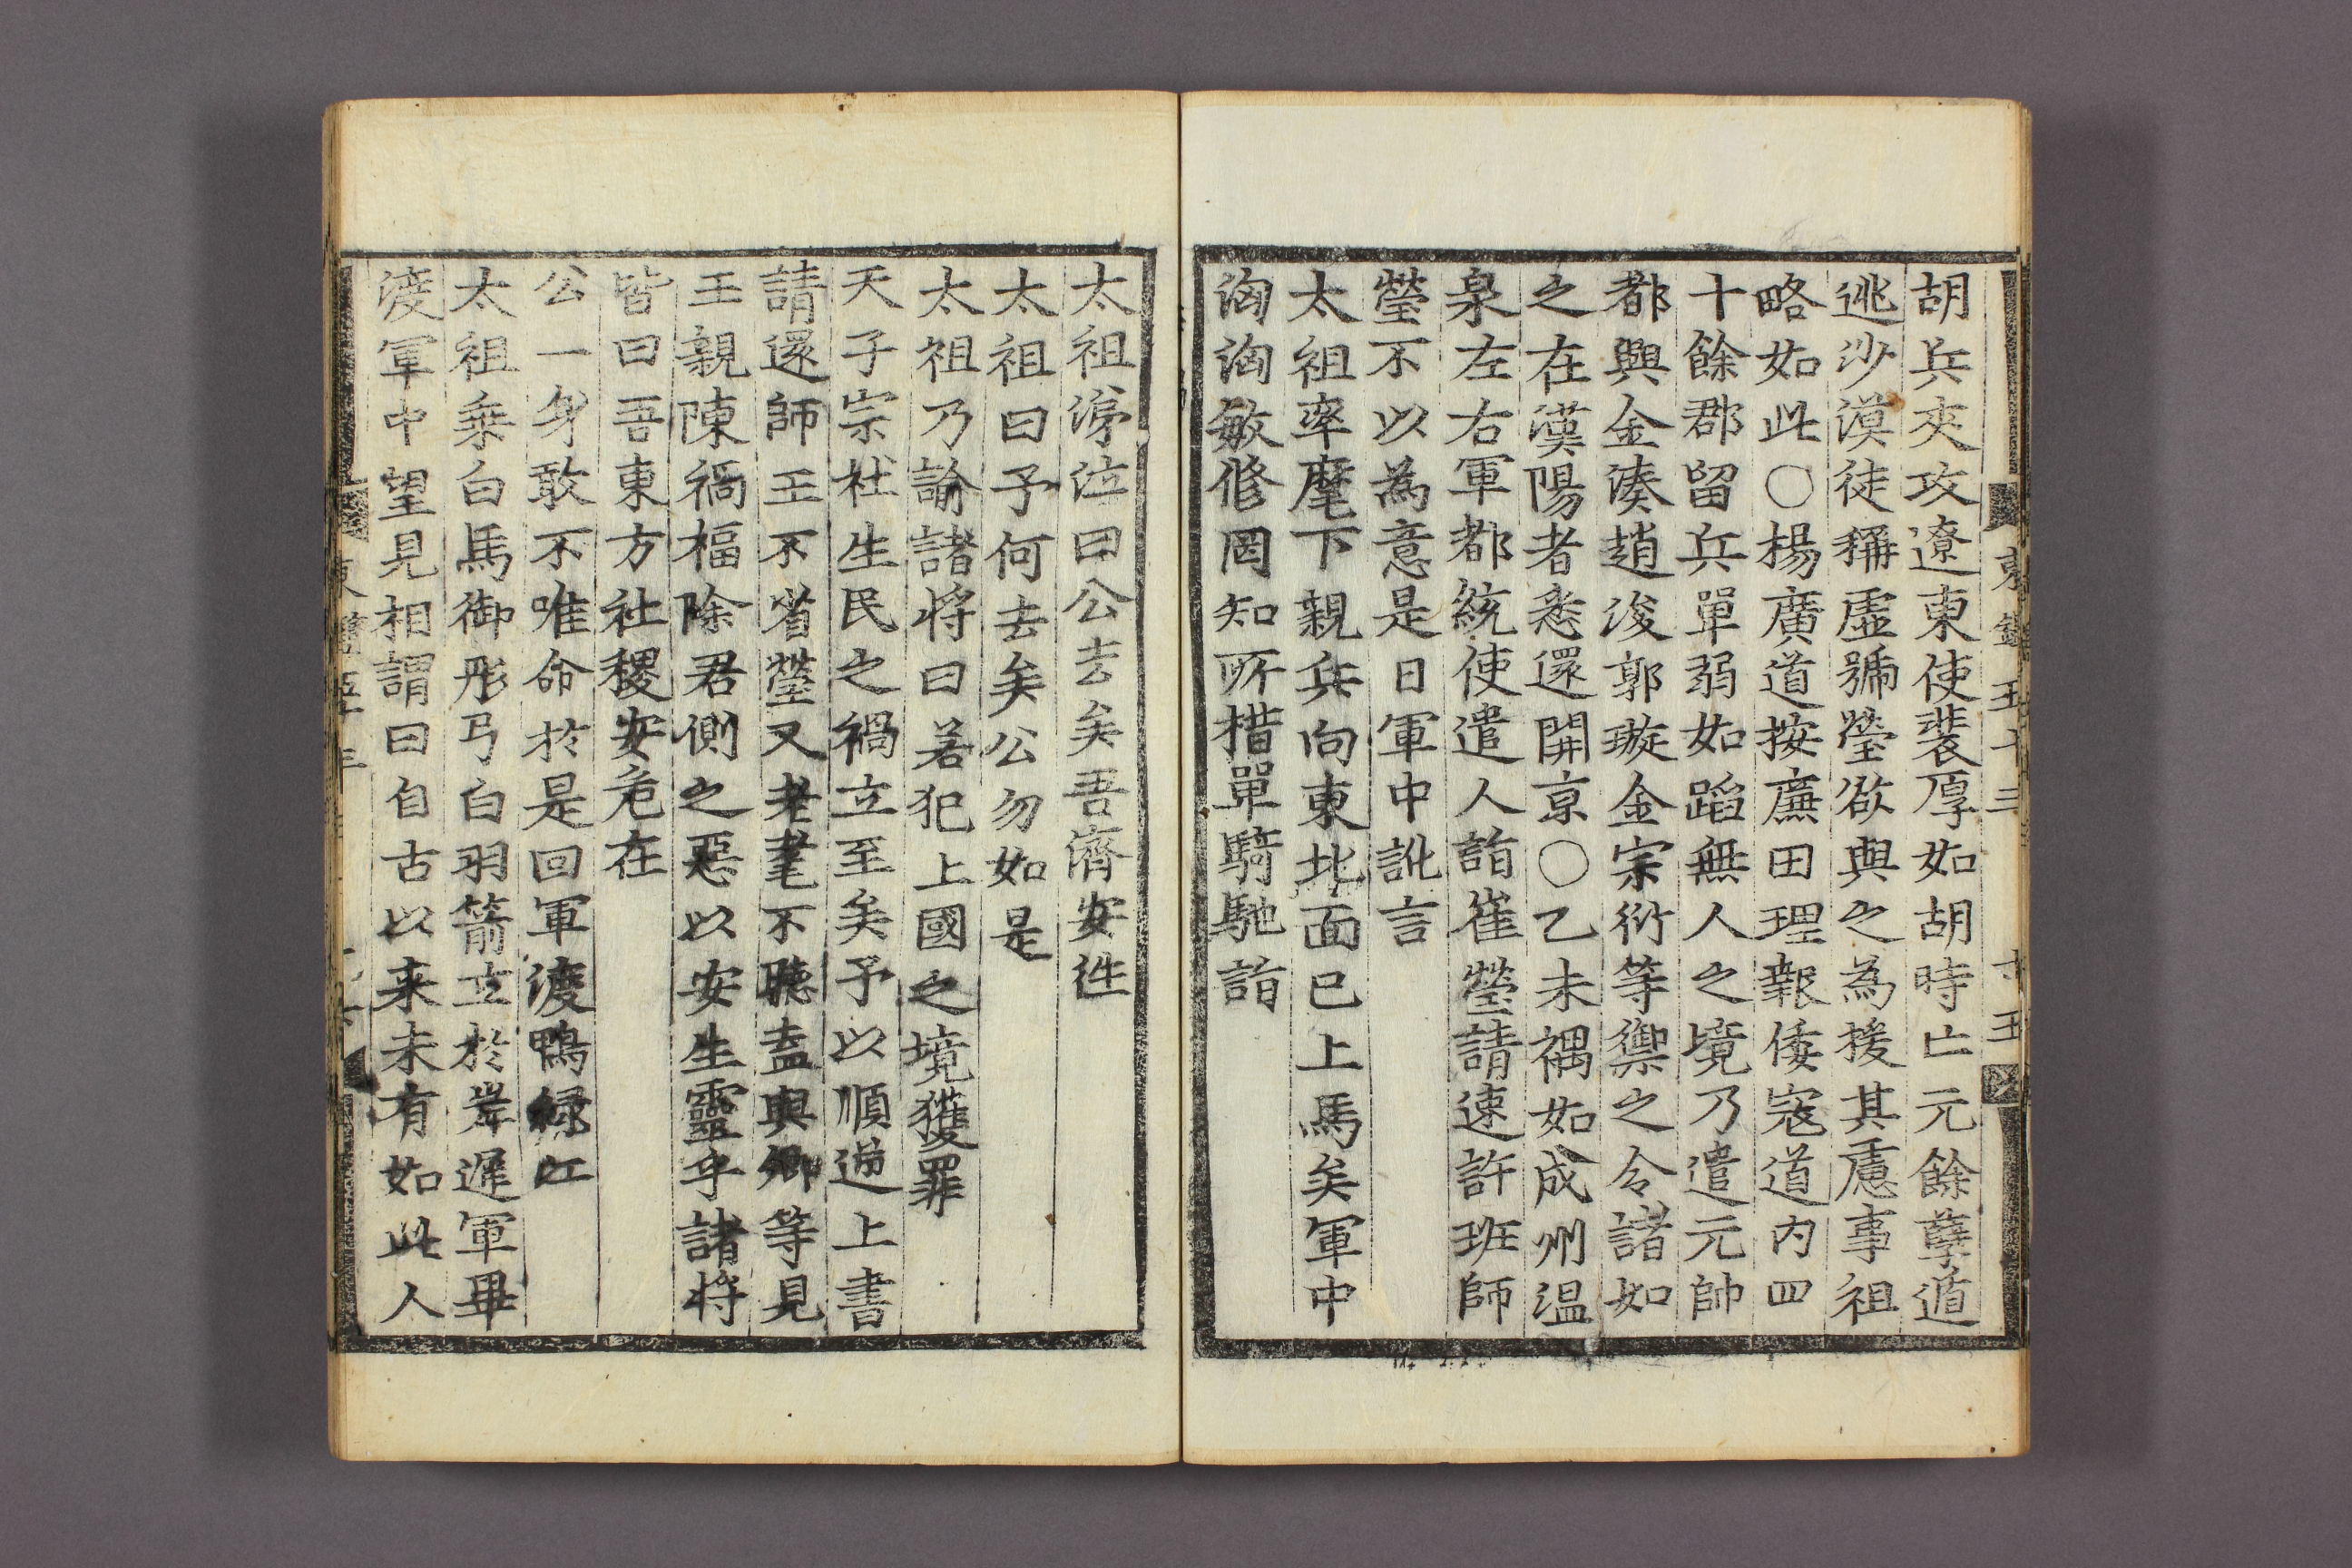 胡兵夾攻遼東使裴厚如胡時亡元餘孽遁
逃沙漠徒稱虛號瑩欲與之為援其慮事祖
略如此〇楊廣道按廉田理報倭寇道內四
十餘郡留兵單弱如蹈無人之境乃遣元帥
都興金湊趙浚郭璇金宗衍等禦之令諸如
之在漢陽者悉還開京〇乙未禑如成州溫
泉左右軍都統使遣人詣崔瑩請速許班師
瑩不以為意是日軍中訛言
太祖率麾下親兵向東北面已上馬矣軍中
洶洶敏修罔知所措單騎馳詣
太祖涕泣曰公去矣吾儕安徃
太祖曰予何去矣公勿如是
太祖乃諭諸将曰若犯上國之境獲罪
天子宗社生民之禍立至矣予以順逆上書
請還師王不省瑩又老耄不聽盍與卿等見
王親陳禍福除君側之惡以安生靈乎諸将
皆曰吾東方社稷安危在
公一身敢不唯命於是回軍渡鴨綠江
太祖乘白馬御彤弓白羽箭立於岸遲軍畢
渡軍中望見相謂曰自古以来未有如此人